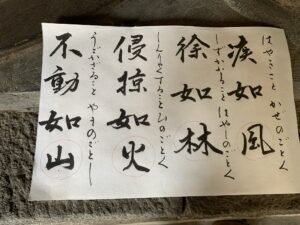 疾如風
はやきこと かぜのごとく
徐如林
しずかなること はやしのごとく
侵掠如火
しんりゃくすること ひのごとく
不動如山
うごかざること やまのごとし